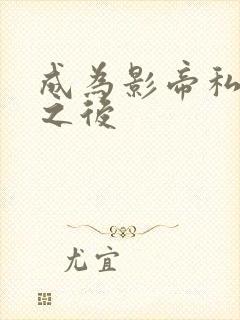 成為影帝私
之後
尤宜